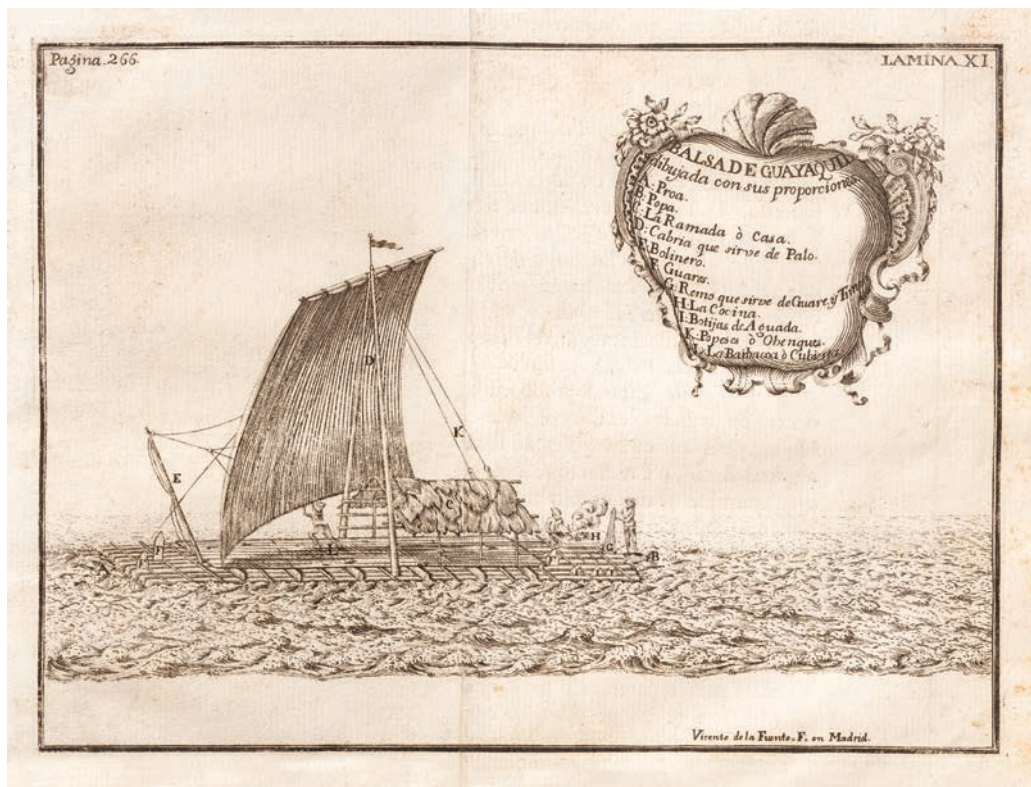 Pagina.266.
LAMINA XI.
BALSA DE GUAYAQUIL
dibujada con sus proporciones
A: Proa.
B: Popa.
C: La Ramada ò Casa.
D: Cabria que sirve de Palo.
E: Bolinero.
F. Guares.
G: Remo que sirve de Guare, y Timon
H: La Cocina.
I: Botijas de Aguada.
K: Popeses ò Obenques.
L: La Barbacoa ò Cubierta
D
K
E
C
H
F
L
G
B
A
Vicente de la Fuente. F. en Madrid.